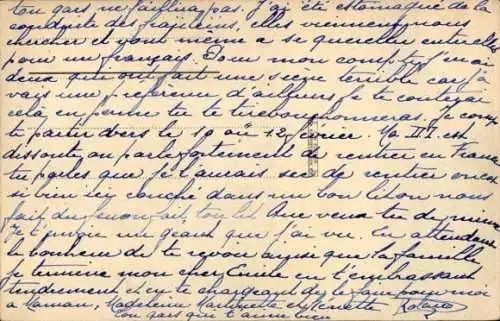 ton gars ne faillira pas. J'ai été estomaqué de la
conduite des fraüleins, elles viennent nous
chercher et vont même a se quereller entre elles
pour un français. Pour mon compte j'en ai
deux qui ont fait une scène terrible car j'a
vais une préférence d'ailleurs je te conterai
cela en perme tu te tirebouchonneras. Je compte
te partir vers le 10 au 12 février. Ya III I. est
dissoute on parle fortement de rentrer en France
tu parles que je t'aurais sec de rentrer on est
si bien ici couché dans un bon lit on nous
fait du feu on fait tout Que veux tu de mieux
Je t'envoie un géant que j'ai vu. En attendant
le bonheur de te revoir ainsi que la famille
je termine mon cher Emile en t'embrassant
tendrement et en te chargeant de le faire pour moi
a Maman, Madeleine Martinette et Ginette
ton gars qui t'aime bien